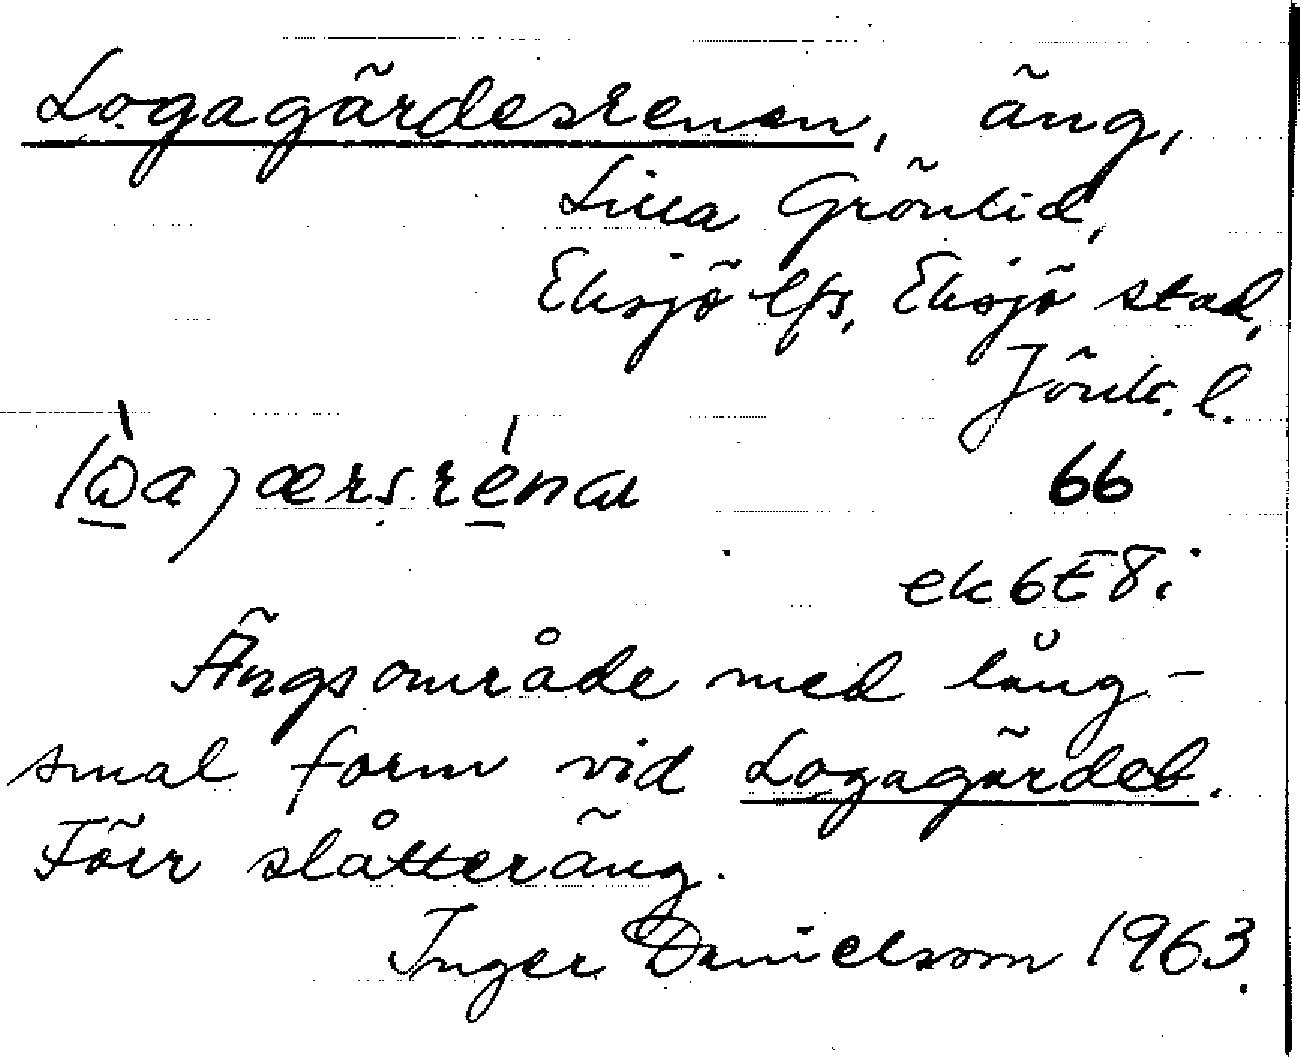 Logagärdesrenen, äng,
Lilla Grönlid,
Eksjö lfs, Eksjö stad,
Jönk. l.
66
ek 6E 8i
Ängsområde med lång-
smal form vid Logagärdet.
Förr slåtteräng.
Inger Danielsson 1963.